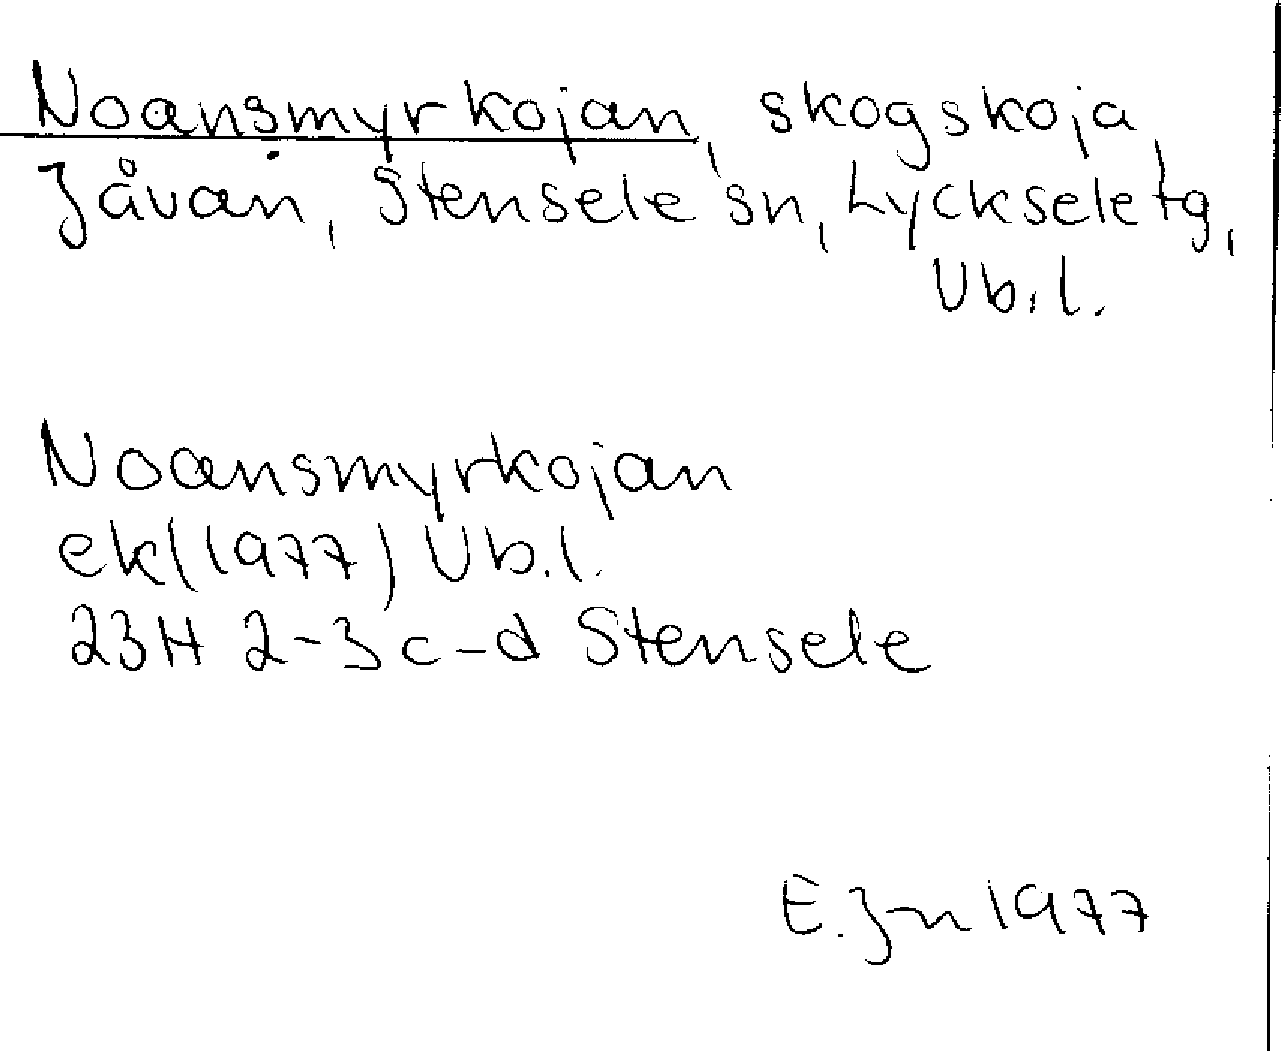 Noansmyrkojan, skogskoja,
Jåvan, Stensele sn, Lycksele tg,
Vb.l.
Noansmyrkojan
ek (1977) Vb.l.
23H 2-3 c-d Stensele
E. Jn 1977